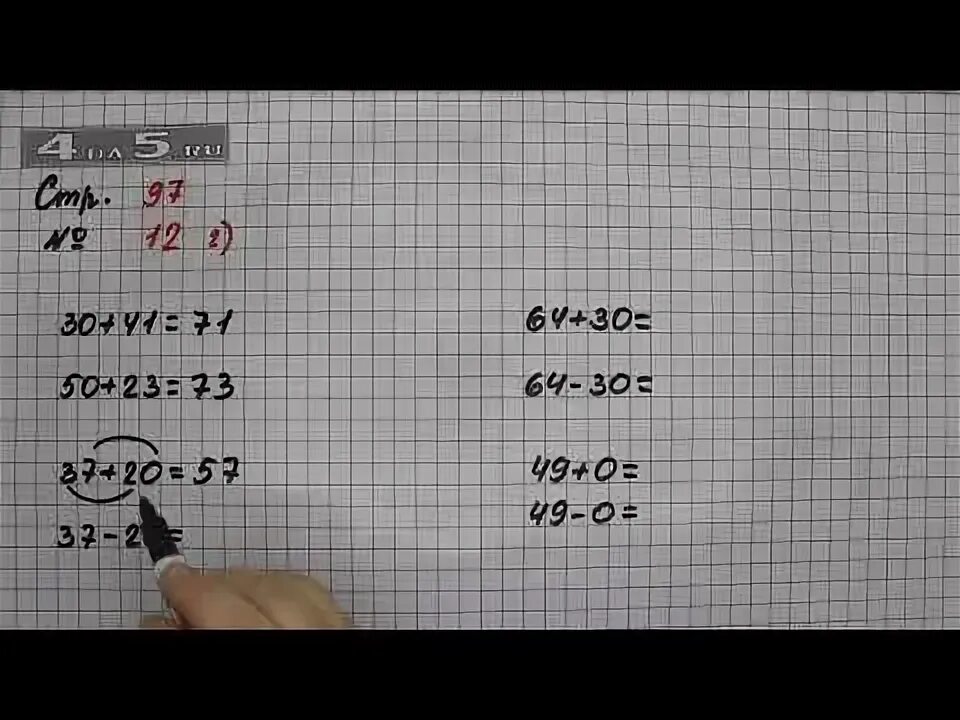 4 на 5.RU
Стр. 97
№ 12 г)
30+41=71
50+23=73
37+20=57
37-2 =
64+30=
64-30=
49+0=
49-0=